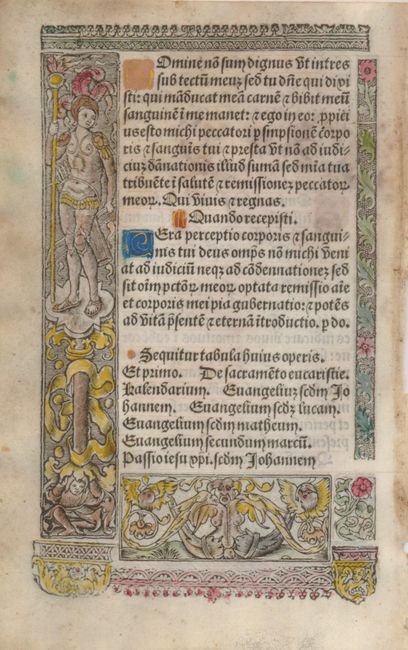 Omine nõ sum dignus ut intres
sub tectũ meuz sed tu dñe qui dixi
sti: qui mãducat meã carnẽ ⁊ bibit meũ
sanguinẽ ĩ me manet: ⁊ ego in eo: ꝓpici
us esto michi peccatori p sũpsionẽ corpo
ris ⁊ sanguis tui ⁊ presta vt nõ ad iudi-
ciuz dãnationis illud sumã sed mia tua
tribuẽte ĩ salutẽ ⁊ remissionez peccatoꝝ
meoꝝ. Qui viuis ⁊ regnas.
Quando recepisti.
Era perceptio corporis ⁊ sangui-
nis tui deus omps nõ michi veni
at ad iudiciũ neqꝫ ad cõdennationez sed
sit oĩm pctõꝝ meoꝝ optata remissio aĩe
et corporis mei pia gubernatio: ⁊ potẽs
ad vitã p̃sentẽ ⁊ eternã ĩtroductio. p do.
Sequitur tabula huius operis.
Et primo. De sacramẽto eucaristie.
Kalendarium. Euangeliuz scdm Jo
hannem. Euangelium scdz lucam.
Euangelium scdm matheum.
Euangelium secundum marcũ.
Passio iesu xpi. scdm Johannem